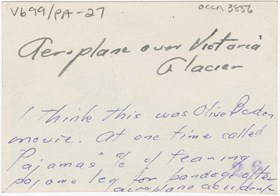 V699/PA-27
accn 3856
Aeroplane over Victoria
Glacier
I think this was Olive Borden
movie. At one time called
"Pajamas" % of tearing
pajama leg for bandage after
aeroplane accident